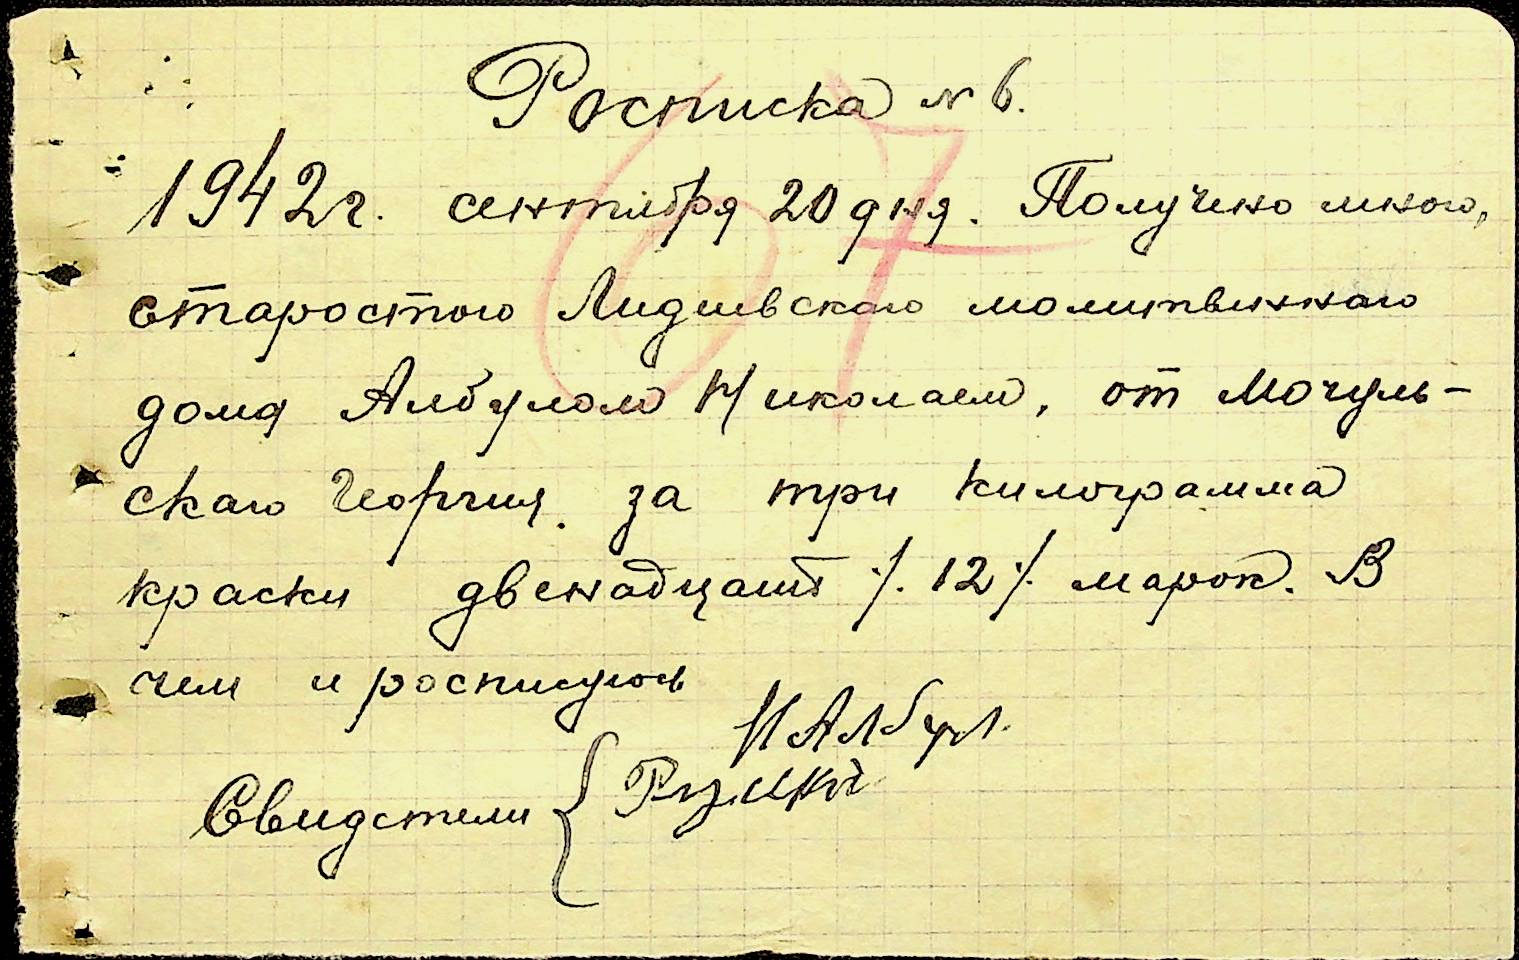 Росписка № 6.
67
1942 г. сентября 20 дня. Получено мною,
старостою Лидиевскаго молитвеннаго
дома Албулом Николаем, от Мочуль-
скаго Георгия за три килограмма
краски двенадцать ./. 12 ./. марок. В
чем и росписуюсь
Н Албул.
Свидетели {